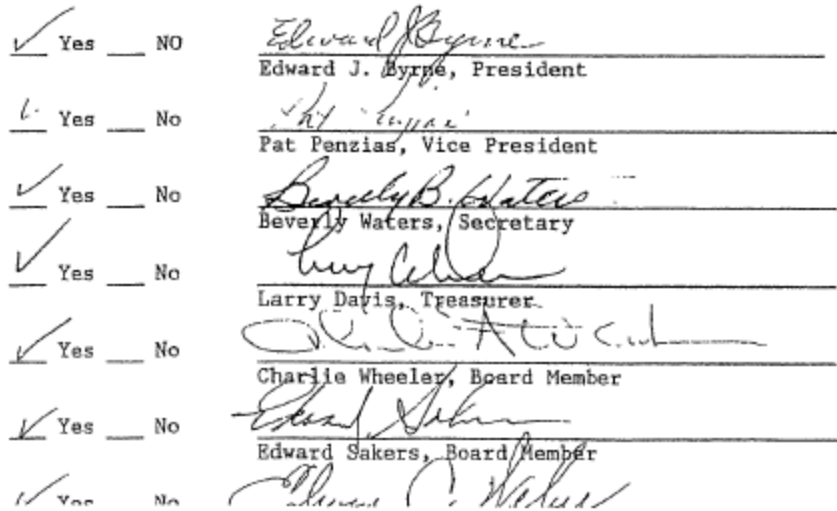 ✓ Yes ___ NO Edward J Byrne
Edward J. Byrne, President
✓ Yes ___ No Pat
Pat Penzias, Vice President
✓ Yes ___ No Beverly B. Waters
Beverly Waters, Secretary
✓ Yes ___ No
Larry Davis, Treasurer
✓ Yes ___ No
Charlie Wheeler, Board Member
✓ Yes ___ No
Edward Sakers, Board Member
✓ Yes No